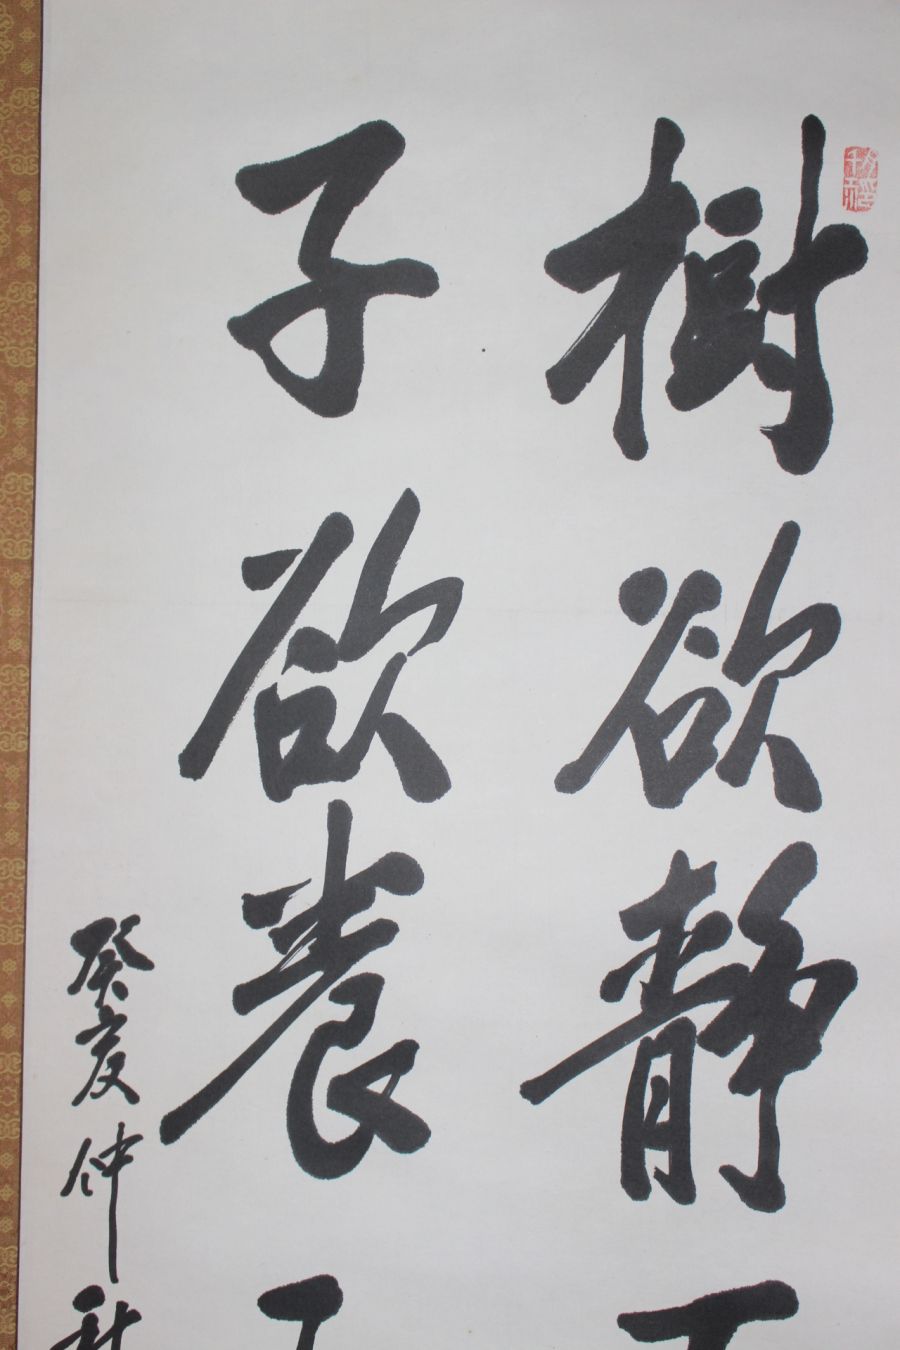 樹欲静
子欲養
癸亥仲秋